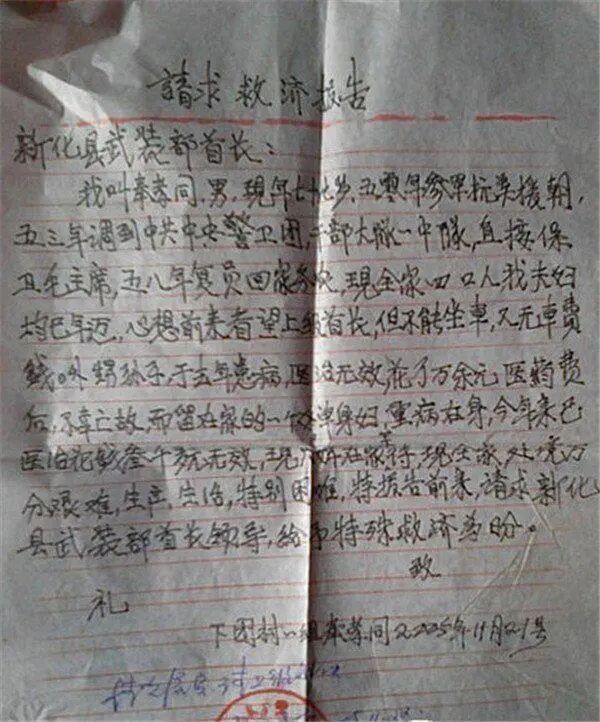 請求救济报告
新化县武装部首长：
我叫奉孝同，男，現年七十七岁，五零年參軍抗美援朝，
五三年調到中共中央警卫团，干部大隊一中隊，直接保
卫毛主席，五八年复員回家务农，現全家四口人我夫妇
均已年迈，心想前来看望上级首长，但不能坐車，又无車费
錢。外甥孙子，于去年患病，医治无效花了万余元医药费
后，不幸亡故，而留在家的一个单身妇，重病在身，今年来已
医治花錢叁千多无效，現 在家待，現全家，处境万
分艰难，生产，生活，特别困难，特报告前来，請求新化
县武装部首长领导，给予特殊救济为盼。
致
礼
下团村一组奉孝同 2005年11月21号